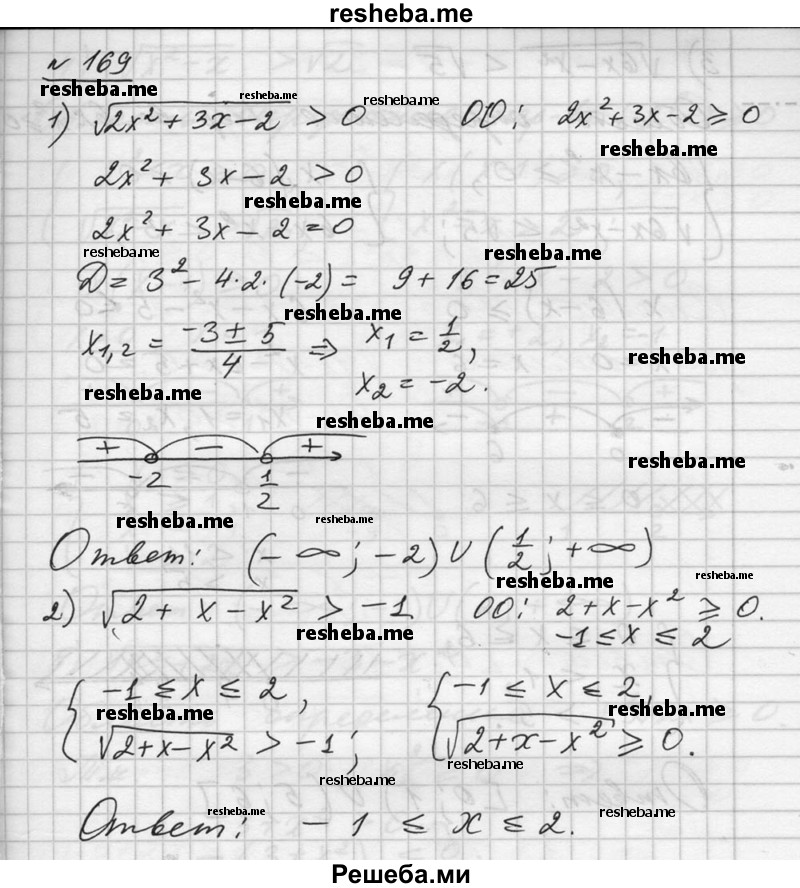 resheba.me
№ 169
resheba.me
resheba.me
resheba.me
1) √(2x² + 3x - 2) > 0   ОО: 2x² + 3x - 2 ≥ 0
resheba.me
2x² + 3x - 2 > 0
resheba.me
2x² + 3x - 2 = 0
resheba.me
resheba.me
D = 3² - 4·2·(-2) = 9 + 16 = 25
resheba.me
x₁,₂ = (-3 ± 5)/4 ⇒ x₁ = 1/2,
resheba.me
x₂ = -2.
resheba.me
resheba.me
+ - +
resheba.me
-2   1/2
resheba.me
resheba.me
Ответ: (-∞; -2) ∪ (1/2; +∞)
resheba.me
resheba.me
2) √(2 + x - x²) > -1   ОО: 2 + x - x² ≥ 0.
resheba.me
-1 ≤ x ≤ 2
{ -1 ≤ x ≤ 2,   { -1 ≤ x ≤ 2,
resheba.me
resheba.me
√(2 + x - x²) > -1;   √(2 + x - x²) ≥ 0.
resheba.me
resheba.me
resheba.me
resheba.me
Ответ: -1 ≤ x ≤ 2.
Решеба.ми